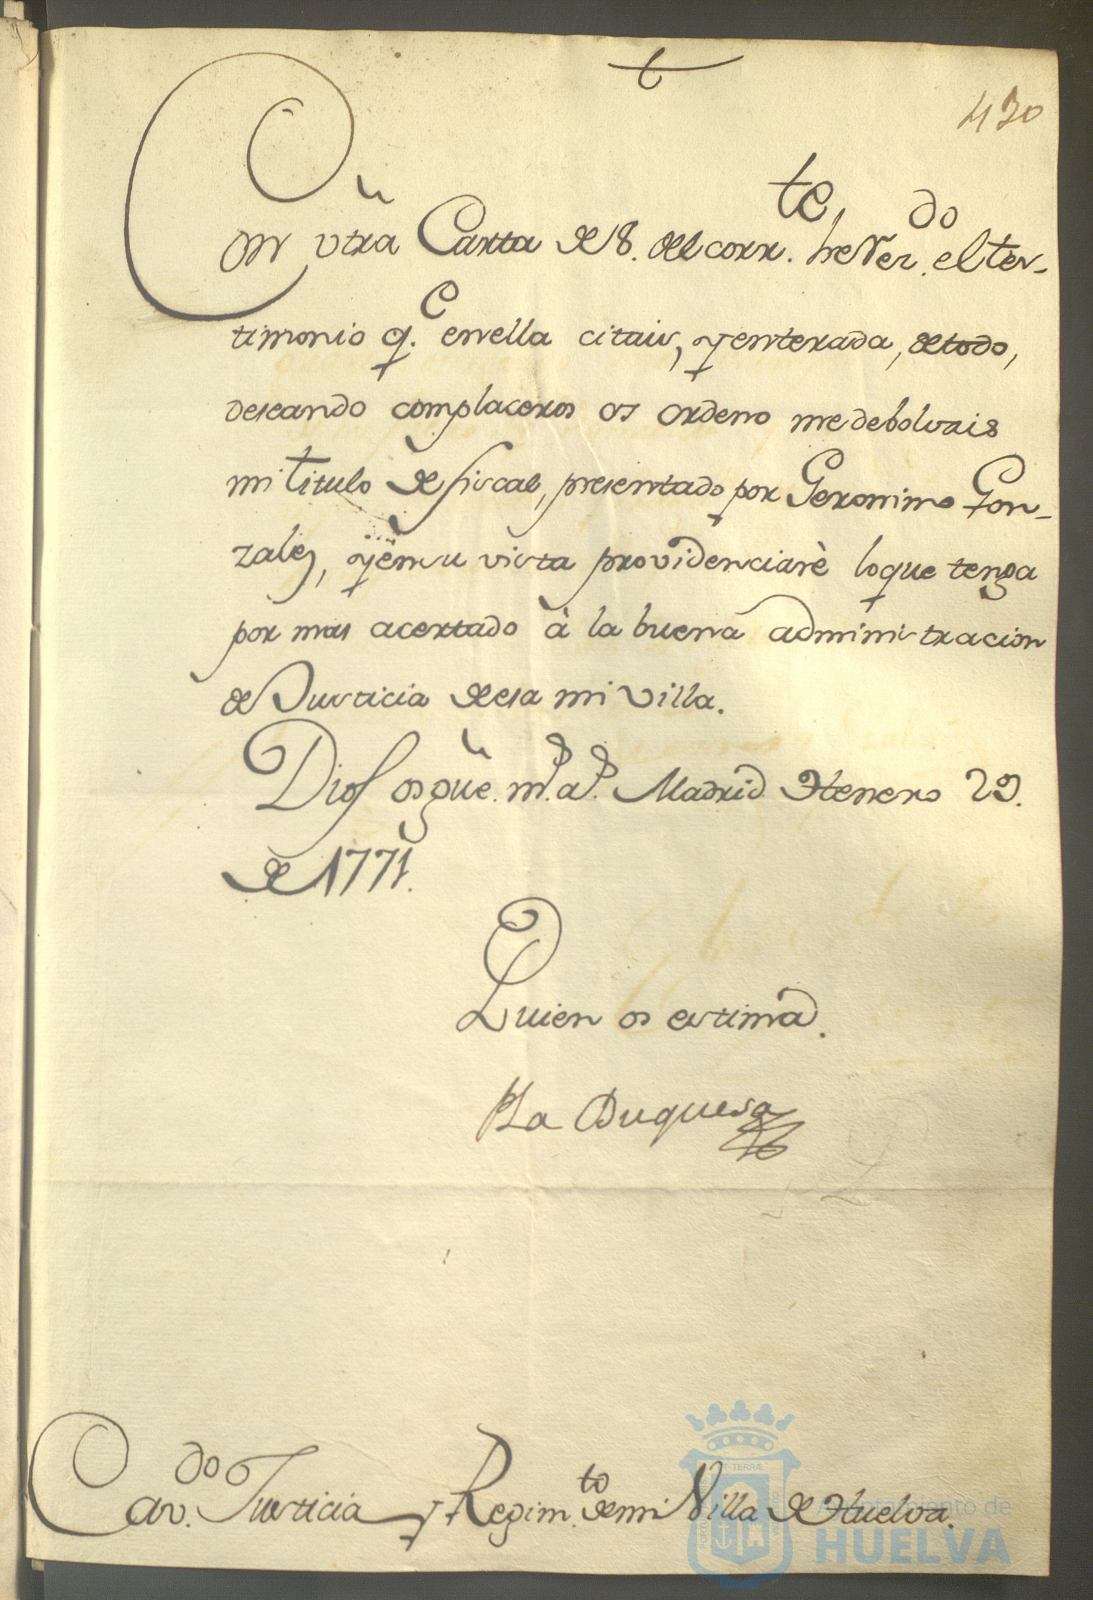 430
Con vtrã Carta de 18. del corr.te he Rer.do el tes-
timonio q.e en ella citais, y enterada, de todo,
deseando complaceros os ordeno me debolvais
mi Titulo de fiscal, presentado por Geronimo Gon-
zales, y en su vista providenciarè lo que tenga
por mas acertado à la buena administracion
de Justicia de esa mi Villa.
Dios os güe. m.s a.s Madrid Henero 29.
de 1771.
Quien os estima.
La Duquesa
Cav.do Justicia y Regim.to de mi Villa de Huelva.
Ayuntamiento de
HUELVA